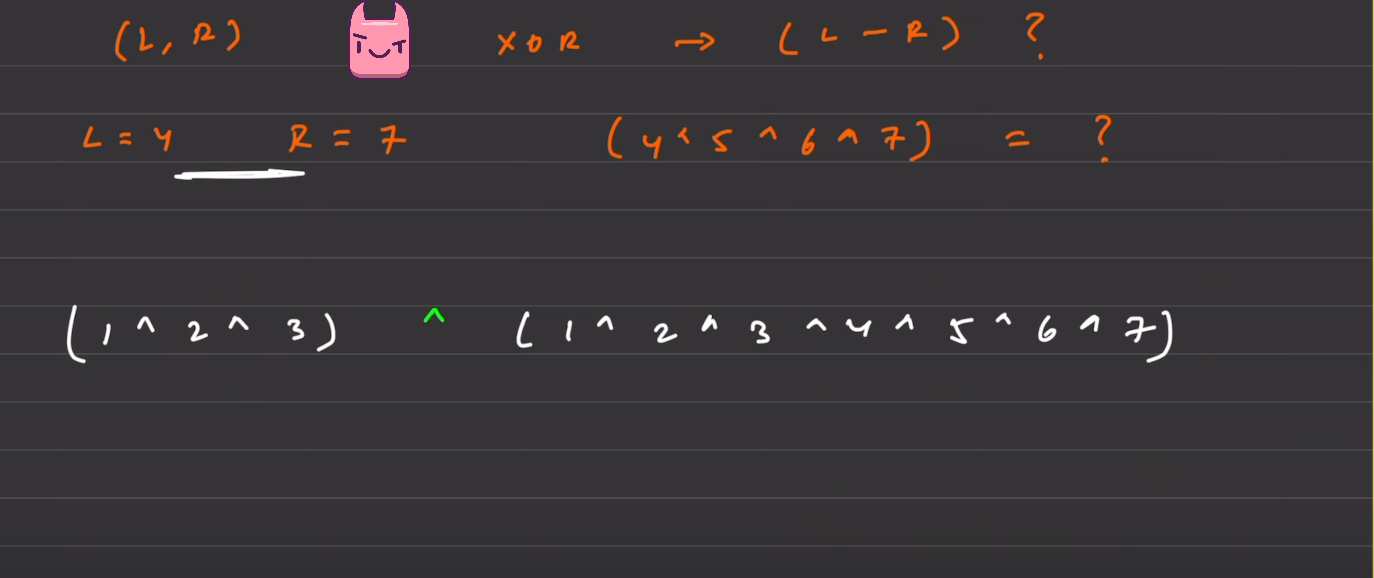 (L, R) XOR → (L - R) ?
L = 4 R = 7 (4 ^ 5 ^ 6 ^ 7) = ?
(1 ^ 2 ^ 3) ^ (1 ^ 2 ^ 3 ^ 4 ^ 5 ^ 6 ^ 7)